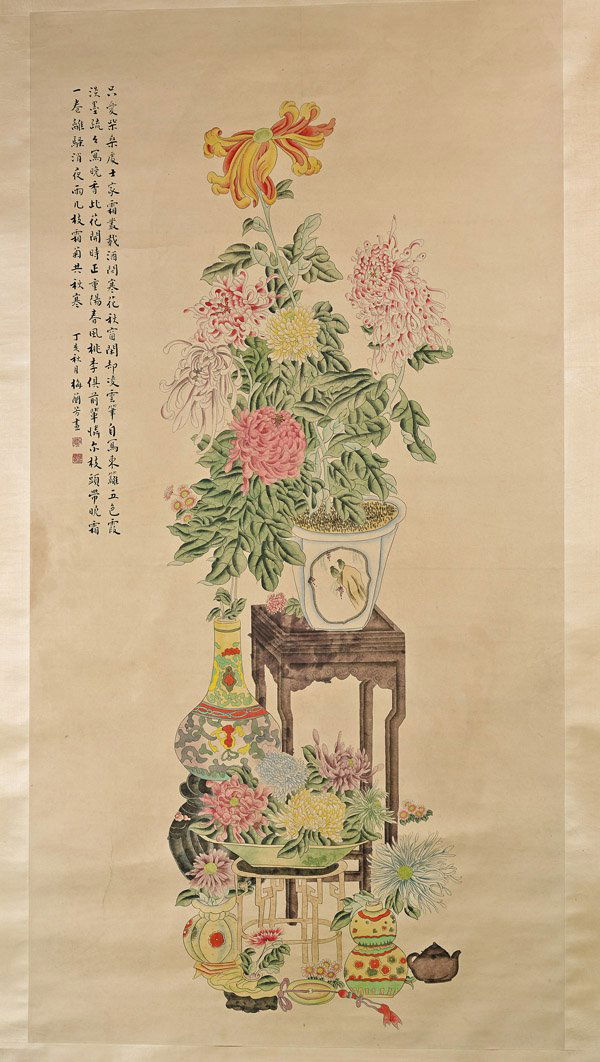 只愛柴桑處士家霜叢載酒問寒花秋窗閑却凌雲筆自寫東籬五色霞
淡墨疏々寫晚香此花開時正重陽春風桃李俱前輩憐尔枝頭帶晚霜
一卷離騷消夜雨几枝霜菊共秋寒
丁亥秋月梅蘭芳畫